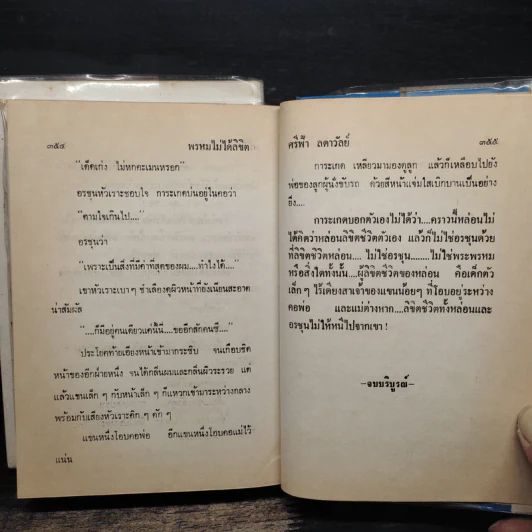 ๓๕๔ พรหมไม่ได้ลิขิต
"เด็กเก่ง ไม่หกคะเมนหรอก"
อรชุนหัวเราะชอบใจ การะเกดบ่นอยู่ในคอว่า
"ตามใจเกินไป...."
อรชุนว่า
"เพราะเป็นสิ่งที่มีค่าที่สุดของผม....ทำไงได้...."
เขาหัวเราะเบาๆ ชำเลืองดูผิวหน้าที่ยังเนียนสะอาด
น่าสัมผัส
"....ก็มีอยู่คนเดียวแค่นี้นี่....ขออีกสักคนซี...."
ประโยคท้ายเอียงหน้าเข้ามากระซิบ จนเกือบชิด
หน้าของอีกฝ่ายหนึ่ง จนได้กลิ่นผมและกลิ่นผิวระรวย แต่
แล้วแขนเล็ก ๆ กับหน้าเล็ก ๆ ก็แหวกเข้ามาระหว่างกลาง
พร้อมกับเสียงหัวเราะคิก ๆ คัก ๆ
แขนหนึ่งโอบคอพ่อ อีกแขนหนึ่งโอบคอแม่ไว้
แน่น
ศรีฟ้า ลดาวัลย์ ๓๕๕
การะเกด เหลียวมามองดูลูก แล้วก็เหลือบไปยัง
พ่อของลูกผู้นั่งขับรถ ด้วยสีหน้าแจ่มใสเบิกบานเป็นอย่าง
ยิ่ง....
การะเกดบอกตัวเองไม่ได้ว่า....คราวนี้หล่อนไม่
ได้คิดว่าหล่อนลิขิตชีวิตตัวเอง แล้วก็ไม่ใช่อรชุนด้วย
ที่ลิขิตชีวิตหล่อน.... ไม่ใช่อรชุน........ไม่ใช่พระพรหม
หรือสิ่งใดทั้งนั้น....ผู้ลิขิตชีวิตของหล่อน คือเด็กตัว
เล็กๆ ไร้เดียงสาเจ้าของแขนน้อยๆ ที่โอบอยู่ระหว่าง
คอพ่อ และแม่ต่างหาก....ลิขิตชีวิตทั้งหล่อนและ
อรชุนไม่ให้หนีไปจากเขา !
–จบบริบูรณ์–